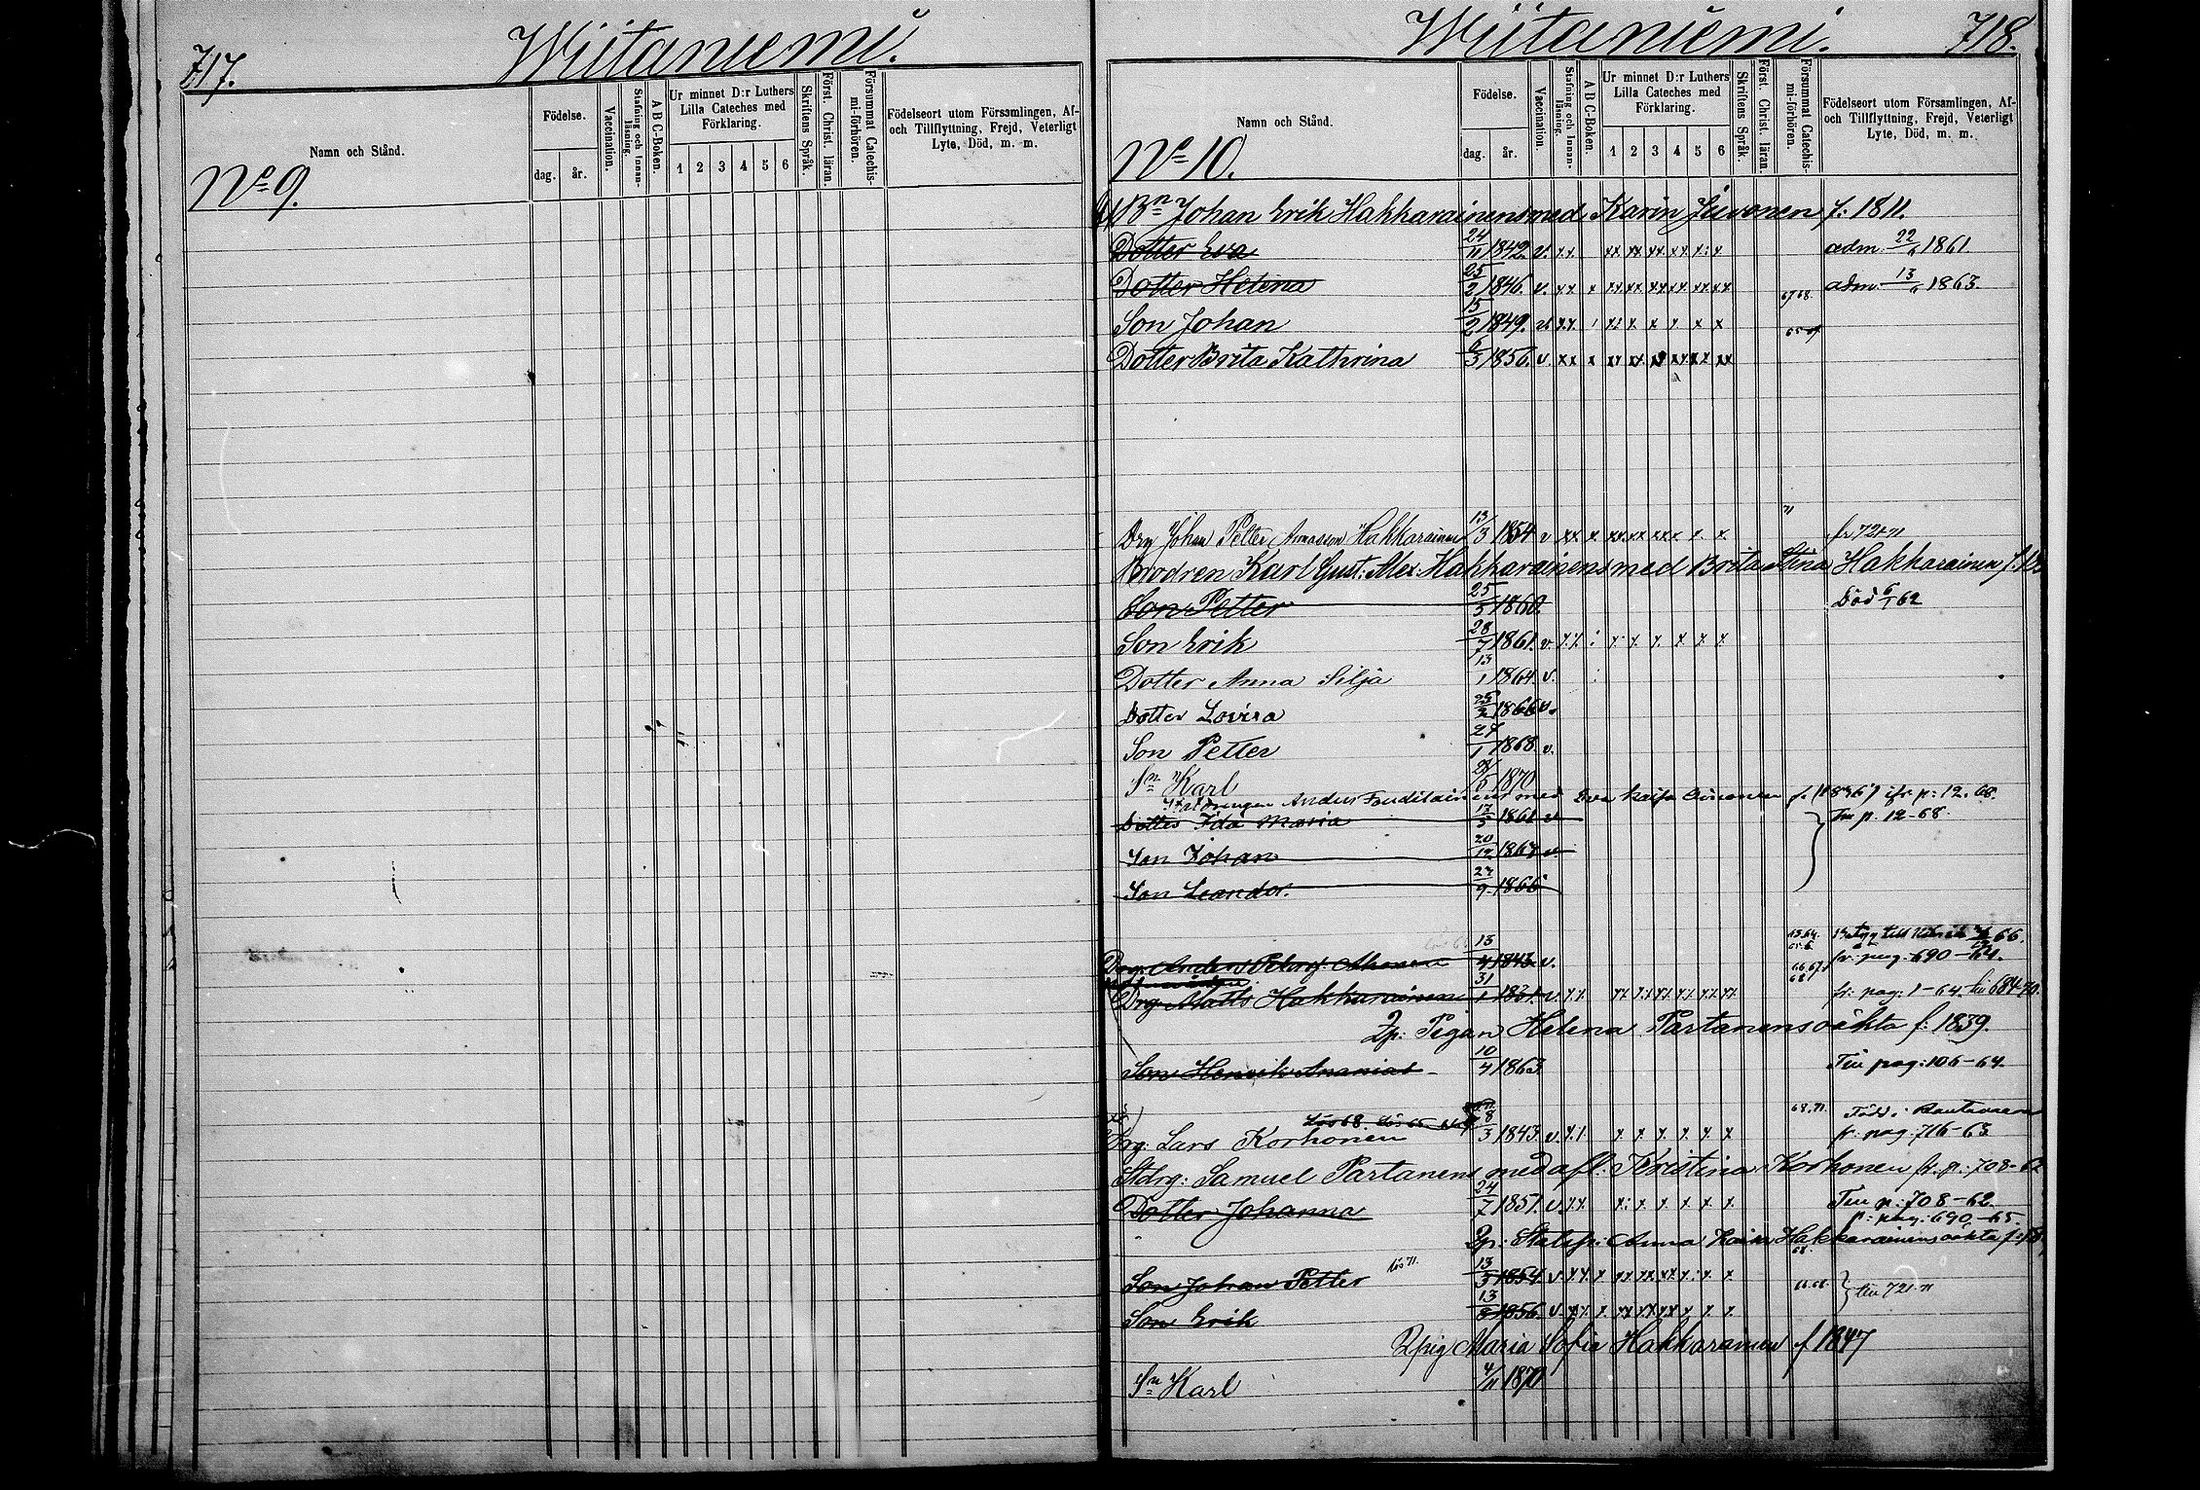 717.
Wiitaniemi.
Namn och Stånd.
Födelse.
dag.
år.
Vaccination.
Stafning och Innan-läsning.
A B C-Boken.
Ur minnet D:r Luthers
Lilla Cateches med
Förklaring.
1 2 3 4 5 6
Skriftens Språk.
Först. Christ. läran.
Försummat Catechis-mi-förhören.
Födelseort utom Församlingen, Af-
och Tillflyttning, Frejd, Veterligt
Lyte, Död, m. m.
No 9.
Wiitaniemi.
718.
Namn och Stånd.
Födelse.
dag.
år.
Vaccination.
Stafning och Innan-läsning.
A B C-Boken.
Ur minnet D:r Luthers
Lilla Cateches med
Förklaring.
1 2 3 4 5 6
Skriftens Språk.
Först. Christ. läran.
Försummat Catechis-mi-förhören.
Födelseort utom Församlingen, Af-
och Tillflyttning, Frejd, Veterligt
Lyte, Död, m. m.
No 10.
Bn Johan Erik Hakkarainens med Karin f: 1811.
Dotter Eva 24/11 1842. v. xx xx xx xx xx x: x adm. 22/6 1861
Dotter Helena 25/2 1846. v. xx x xx xx xx xx xx xx adm. 13/6 1863.
67 68.
Son Johan 15/2 1849. xx x: x x x x x
Dotter Brita Kathrina 6/3 1856. v. xx x xx xx xx xx xx xx
71
Drg Johan Petter Hakkarainen 13/3 1854 v xx x xx xx xx x x x fr 721-71
Brodren Karl Gust: Alex: Hakkarainens med Brita Stina Hakkarainen
Son Petter 25/5 1860 Död 6/1 62
Son Erik 28/7 1861. v. x x : x x x x x x
Dotter Anna Silja 13/1 1864 v.
Dotter Lovisa 25/2 1866 v.
Son Petter 27/1 1868 v.
Sn Karl 28/5 1870
Anders med Eva Kaisa f. (1836) p: 12. 68.
Dotter Ida Maria 17/5 1861 v p. 12-68.
Son Johan 20/12 v.
Son Leander. 27/9 1866
Betyg till 66.
Drg: Anders 13/4 1843 v. fr: pag. 690-64.
66.67.
68
Drg Matts Hakkarainen 31/1 1831 v. x x xx xx xx xx xx xx fr: pag: 1-64. 684-70.
2p: Pigan Helena Partanens oäkta f: 1839.
Son Henrik Ananias 10/4 1863 pag: 106-64.
Lös 68. 68.71. Född i Rautavaara
Drg: Lars Korhonen 8/3 1843 v. x x x x x x x fr: pag. 716-63
Stdrg: Samuel Partanens med afl: Kristina Korhonen fr. p: 708-62
Dotter Johanna 24/7 1851. v. x x x: x x x x x p: 708-62.
fr: pag: 690-65.
2p: Anna Hakkarainens oäkta
lös 71.
Son Johan Petter 13/3 1854 v. x x x xx xx xx x: x x
Son Erik 13/8 1856. v. x x x xx xx xx x x x 721-71
2pig Maria Sofia Hakkarainen f 1847
Sn Karl 4/11 1870